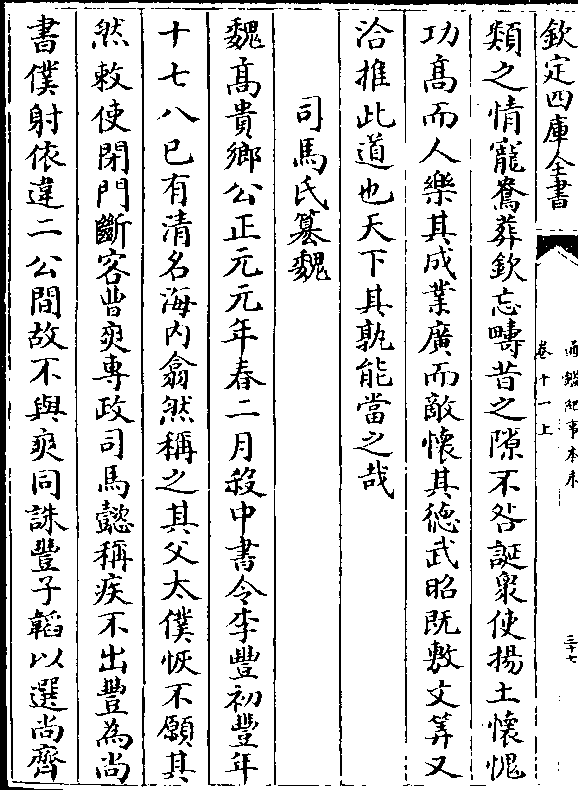 欽定四庫全書
通鑑紀事本末
卷十一上
三十七
類之情寵鴦葬欽忘疇昔之隙不咎誕衆使揚土懷愧
功髙而人樂其成業廣而敵懷其徳武昭既敷文筭又
洽推此道也天下其孰能當之哉
司馬氏篡魏
魏髙貴鄉公正元元年春二月殺中書令李豐初豐年
十七八已有清名海内翕然稱之其父太僕恢不願其
然敕使閉門斷客曹爽專政司馬懿稱疾不出豐為尚
書僕射依違二公間故不與爽同誅豐子韜以選尚齊